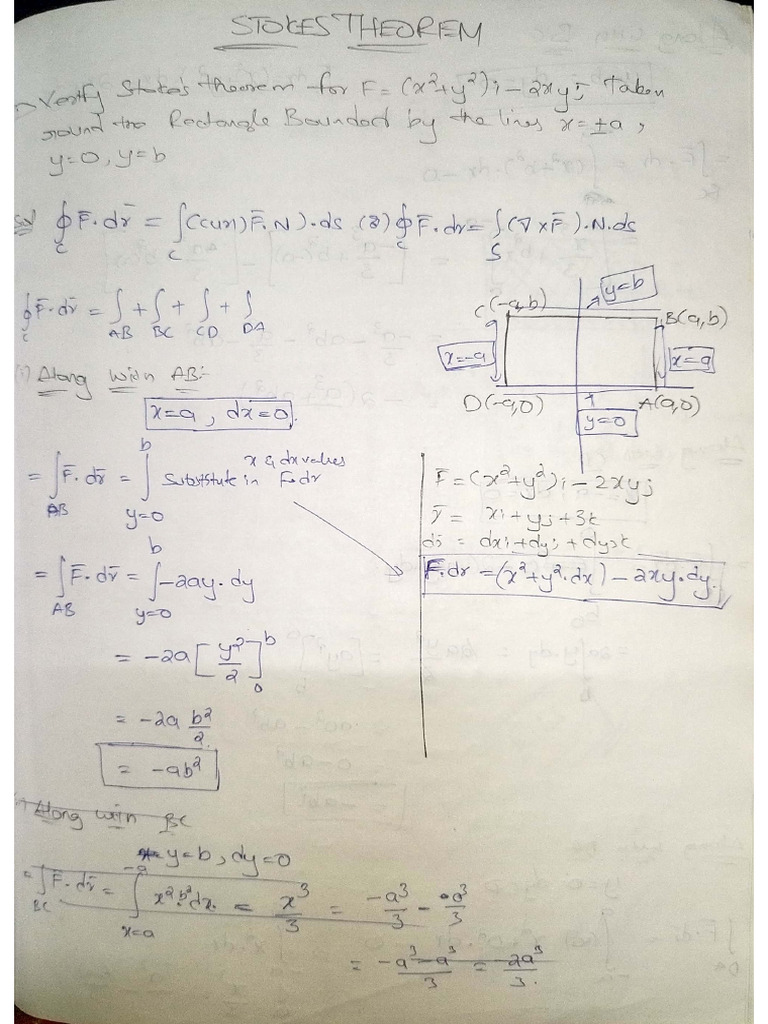 STOKES THEOREM
Verify Stoke's theorem for F = (x²+y²)i - 2xyj Taken
round the Rectangle Bounded by the lines x=±a,
y=0, y=b
Sol ∮_C F̄.dr̄ = ∫_C (curl) F̄.N).ds (or) ∮_C F̄.dr = ∫_S (∇×F̄).N.ds
∮_C F̄.dr̄ = ∫_AB + ∫_BC + ∫_CD + ∫_DA
C(-a,b)
y=b
B(a,b)
x=-a
x=a
D(-a,0)
A(a,0)
y=0
(i) Along with AB:-
x=a, dx=0.
= ∫_AB F̄.dr̄ = ∫_{y=0}^{b} Subststute in x & dx values F.dr
F̄ = (x²+y²)i - 2xyj
r̄ = xi+yj+3k
dr̄ = dxi+dyj+dy3k
F.dr = (x²+y².dx) - 2xy.dy.
= ∫_AB F̄.dr̄ = ∫_{y=0}^{b} -2ay.dy
= -2a [y²/2]_0^b
= -2a b²/2
= -ab²
Along with BC
y=b, dy=0
= ∫_BC F̄.dr̄ = ∫_{x=a}^{-a} x².b².dx = x³/3 = -a³/3 - a³/3
= -a³-a³/3 = 2a³/3.